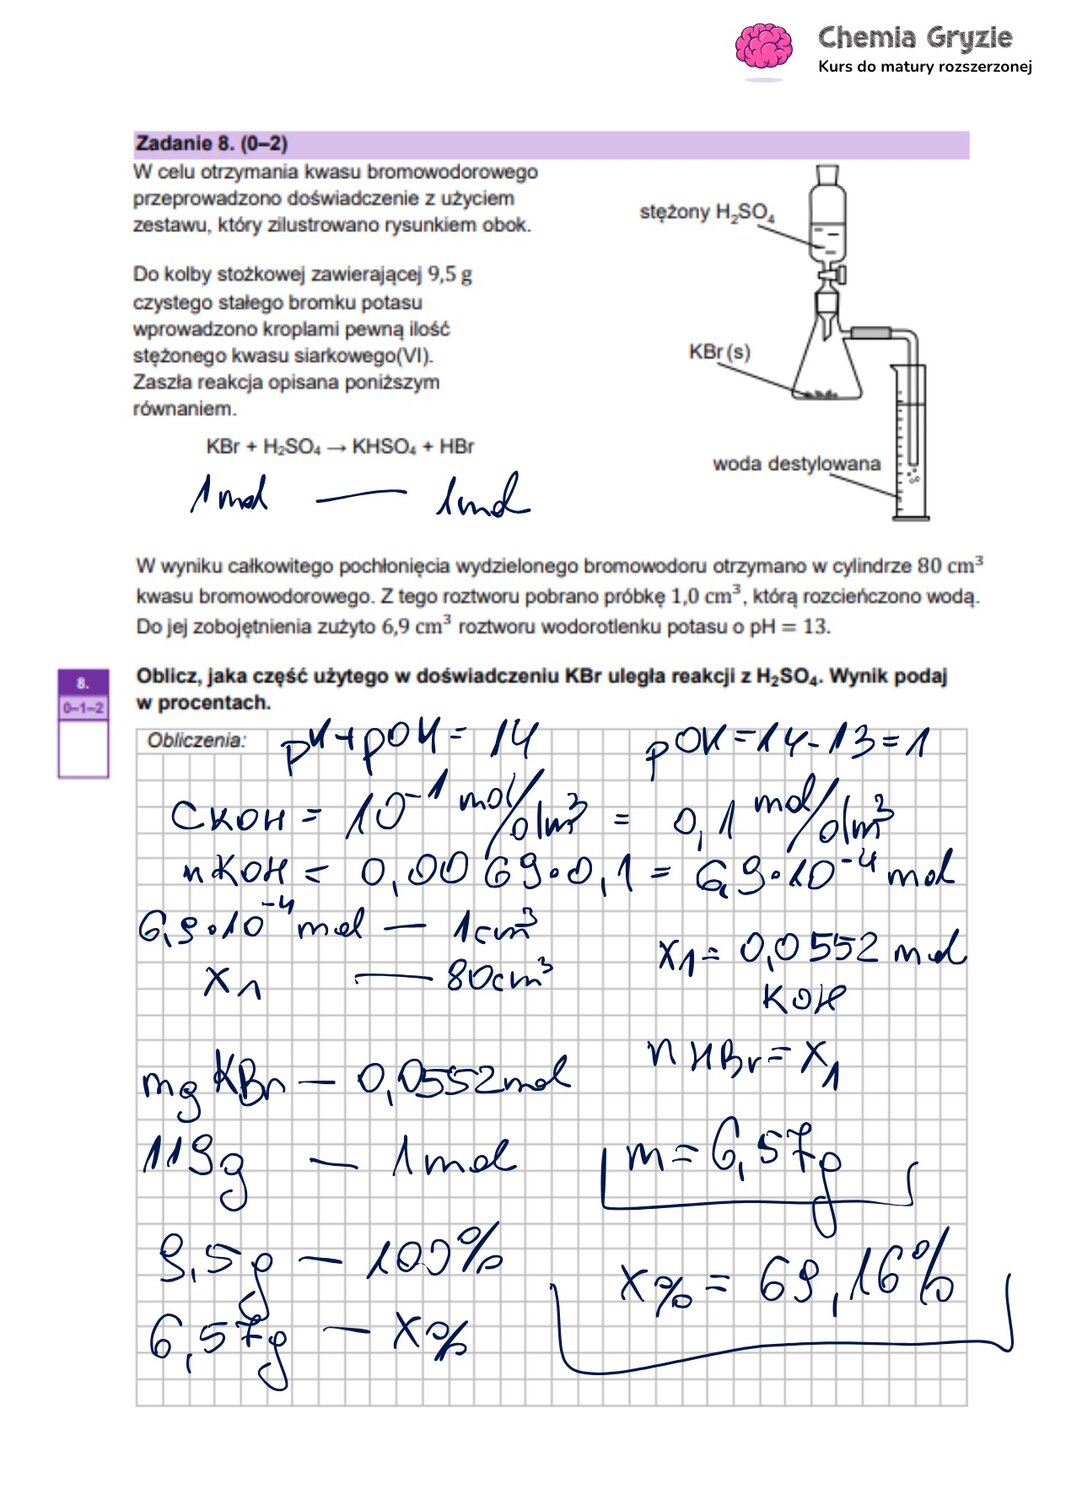 Chemia Gryzie
Kurs do matury rozszerzonej
Zadanie 8. (0–2)
W celu otrzymania kwasu bromowodorowego
przeprowadzono doświadczenie z użyciem
zestawu, który zilustrowano rysunkiem obok.
stężony H₂SO₄
Do kolby stożkowej zawierającej 9,5 g
czystego stałego bromku potasu
wprowadzono kroplami pewną ilość
stężonego kwasu siarkowego(VI).
Zaszła reakcja opisana poniższym
równaniem.
KBr (s)
KBr + H₂SO₄ → KHSO₄ + HBr
woda destylowana
1mol — 1mol
W wyniku całkowitego pochłonięcia wydzielonego bromowodoru otrzymano w cylindrze 80 cm³
kwasu bromowodorowego. Z tego roztworu pobrano próbkę 1,0 cm³, którą rozcieńczono wodą.
Do jej zobojętnienia zużyto 6,9 cm³ roztworu wodorotlenku potasu o pH = 13.
8.
0–1–2
Oblicz, jaka część użytego w doświadczeniu KBr uległa reakcji z H₂SO₄. Wynik podaj
w procentach.
Obliczenia: pH+pOH = 14 pOH=14-13=1
CKOH = 10⁻¹ mol/dm³ = 0,1 mol/dm³
nKOH = 0,0069·0,1 = 6,9·10⁻⁴ mol
6,9·10⁻⁴ mol — 1cm³
x₁ — 80cm³
x₁= 0,0552 mol
KOH
nHBr=x₁
mg KBr — 0,0552mol
119g — 1mol
m=6,57g
9,5g — 100%
6,57g — x%
x% = 69,16%